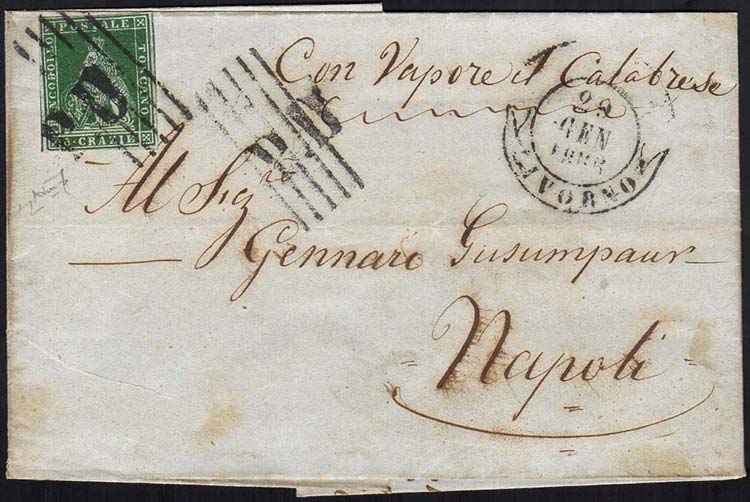 FRANCOBOLLO
POSTALE
TOSCANO
4 CRAZIE
PD
PD
Con Vapore il Calabrese
29
GEN
LIVORNO
Al Sigr
Gennaro Gusumpaur
Napoli